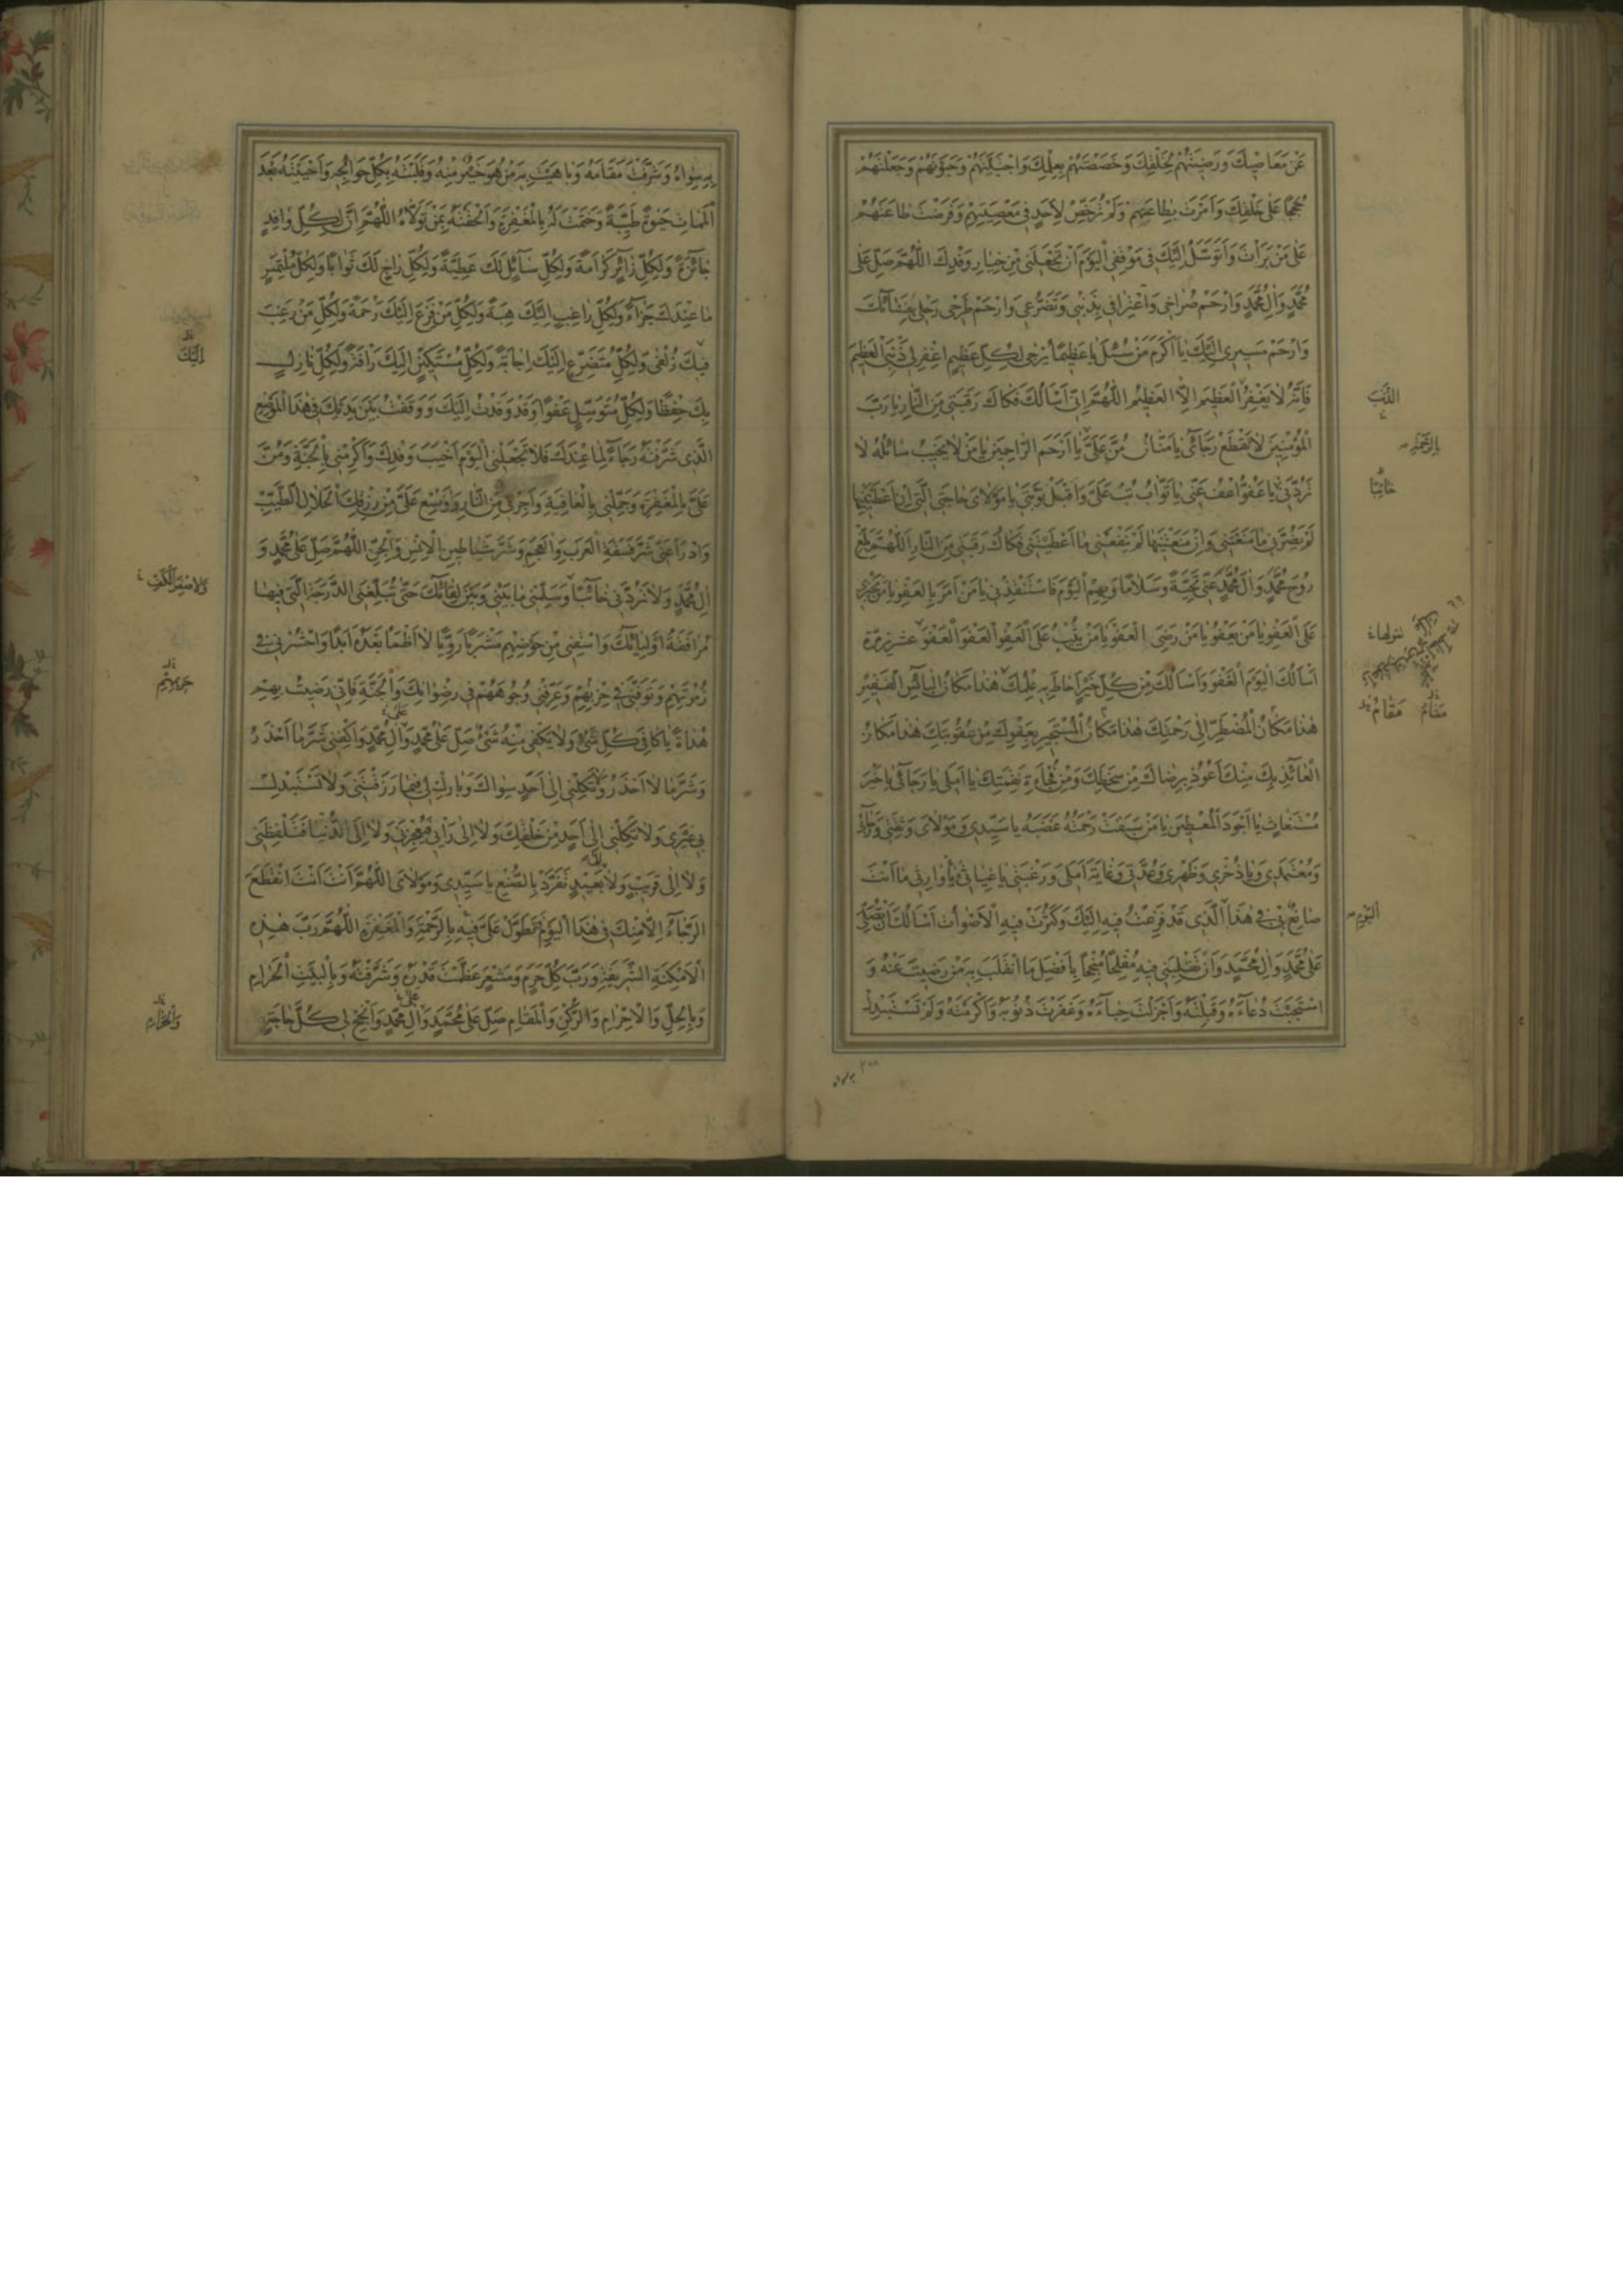 عَنْ مَعَاصِيكَ وَرَضِيتَهُمْ لِخَلْقِكَ وَخَصَصْتَهُمْ بِعِلْمِكَ وَاجْتَبَيْتَهُمْ وَحَبَوْتَهُمْ وَجَعَلْتَهُمْ
حُجَجًا عَلَى خَلْقِكَ وَأَمَرْتَ بِطَاعَتِهِمْ وَلَمْ تُرَخِّصْ لِأَحَدٍ فِي مَعْصِيَتِهِمْ وَفَرَضْتَ طَاعَتَهُمْ
عَلَى مَنْ بَرَأْتَ وَأَتَوَسَّلُ إِلَيْكَ فِي مَوْقِفِي الْيَوْمَ أَنْ تَجْعَلَنِي مِنْ خِيَارِ وَفْدِكَ اللَّهُمَّ صَلِّ عَلَى
مُحَمَّدٍ وَآلِ مُحَمَّدٍ وَارْحَمْ صُرَاخِي وَاعْتِرَافِي بِذَنْبِي وَتَضَرُّعِي وَارْحَمْ طَرْحِي رَحْلِي بِفِنَائِكَ
وَارْحَمْ مَسِيرِي إِلَيْكَ يَا أَكْرَمَ مَنْ سُئِلَ يَا عَظِيمًا يُرْجَى لِكُلِّ عَظِيمٍ اغْفِرْ لِي ذَنْبِيَ الْعَظِيمَ
فَإِنَّهُ لَا يَغْفِرُ الْعَظِيمَ إِلَّا الْعَظِيمُ اللَّهُمَّ إِنِّي أَسْأَلُكَ فَكَاكَ رَقَبَتِي مِنَ النَّارِ يَا رَبَّ
الذَّنْبَ
الْمُؤْمِنِينَ لَا تَقْطَعْ رَجَائِي يَا مَنَّانُ مُنَّ عَلَيَّ يَا أَرْحَمَ الرَّاحِمِينَ يَا مَنْ لَا يَخِيبُ سَائِلُهُ لَا
بِالرَّحْمَةِ
تَرُدَّنِي يَا عَفُوُّ اعْفُ عَنِّي يَا تَوَّابُ تُبْ عَلَيَّ وَاقْبَلْ تَوْبَتِي يَا مَوْلَايَ حَاجَتِي الَّتِي إِنْ أَعْطَيْتَنِيهَا
خَائِبًا
لَمْ يَضُرَّنِي مَا مَنَعْتَنِي وَإِنْ مَنَعْتَنِيهَا لَمْ يَنْفَعْنِي مَا أَعْطَيْتَنِي فَكَاكَ رَقَبَتِي مِنَ النَّارِ اللَّهُمَّ بَلِّغْ
رُوحَ مُحَمَّدٍ وَآلِ مُحَمَّدٍ عَنِّي تَحِيَّةً وَسَلَامًا وَبِهِمُ الْيَوْمَ فَاسْتَنْقِذْنِي يَا مَنْ أَمَرَ بِالْعَفْوِ يَا مَنْ يَجْزِي
عَلَى الْعَفْوِ يَا مَنْ يَعْفُو يَا مَنْ رَضِيَ الْعَفْوَ يَا مَنْ يُثِيبُ عَلَى الْعَفْوِ الْعَفْوَ الْعَفْوَ عشرین مرّة
أَسْأَلُكَ الْيَوْمَ الْعَفْوَ وَأَسْأَلُكَ مِنْ كُلِّ خَيْرٍ أَحَاطَ بِهِ عِلْمُكَ هٰذَا مَكَانُ الْبَائِسِ الْفَقِيرِ
هٰذَا مَكَانُ الْمُضْطَرِّ إِلَى رَحْمَتِكَ هٰذَا مَكَانُ الْمُسْتَجِيرِ بِعَفْوِكَ مِنْ عُقُوبَتِكَ هٰذَا مَكَانُ
مَقَامُ مَقَامُ
الْعَائِذِ بِكَ مِنْكَ أَعُوذُ بِرِضَاكَ مِنْ سَخَطِكَ وَمِنْ فُجَاءَةِ نَقِمَتِكَ يَا أَمَلِي يَا رَجَائِي يَا خَيْرَ
مُسْتَغَاثٍ يَا أَجْوَدَ الْمُعْطِينَ يَا مَنْ سَبَقَتْ رَحْمَتُهُ غَضَبَهُ يَا سَيِّدِي وَمَوْلَايَ وَثِقَتِي وَرَجَائِي
وَمُعْتَمَدِي وَيَا ذُخْرِي وَظَهْرِي وَعُدَّتِي وَغَايَةَ أَمَلِي وَرَغْبَتِي يَا غِيَاثِي يَا وَارِثِي مَا أَنْتَ
صَانِعٌ بِي فِي هٰذَا الَّذِي قَدْ فَزِعْتُ فِيهِ إِلَيْكَ وَكَثُرَتْ فِيهِ الْأَصْوَاتُ أَسْأَلُكَ أَنْ تُصَلِّيَ
الْيَوْمِ
عَلَى مُحَمَّدٍ وَآلِ مُحَمَّدٍ وَأَنْ تَقْلِبَنِي فِيهِ مُفْلِحًا مُنْجِحًا بِأَفْضَلِ مَا انْقَلَبَ بِهِ مَنْ رَضِيتَ عَنْهُ وَ
اسْتَجَبْتَ دُعَاءَهُ وَقَبِلْتَهُ وَأَجْزَلْتَ حِبَاءَهُ وَغَفَرْتَ ذُنُوبَهُ وَأَكْرَمْتَهُ وَلَمْ تَسْتَبْدِلْ
به سواه
بِهِ سِوَاهُ وَشَرَّفْتَ مَقَامَهُ وَبَاهَيْتَ بِهِ مَنْ هُوَ خَيْرٌ مِنْهُ وَقَلَبْتَهُ بِكُلِّ حَوَائِجِهِ وَأَحْيَيْتَهُ بَعْدَ
الْمَمَاتِ حَيٰوةً طَيِّبَةً وَخَتَمْتَ لَهُ بِالْمَغْفِرَةِ وَأَلْحَقْتَهُ بِمَنْ تَوَلَّاهُ اللَّهُمَّ إِنَّ لِكُلِّ وَافِدٍ
جَائِزَةً وَلِكُلِّ زَائِرٍ كَرَامَةً وَلِكُلِّ سَائِلٍ لَكَ عَطِيَّةً وَلِكُلِّ رَاجٍ لَكَ ثَوَابًا وَلِكُلِّ مُلْتَمِسٍ
مَا عِنْدَكَ جَزَاءً وَلِكُلِّ رَاغِبٍ إِلَيْكَ هِبَةً وَلِكُلِّ مَنْ فَزِعَ إِلَيْكَ رَحْمَةً وَلِكُلِّ مَنْ رَغِبَ
فِيكَ زُلْفَى وَلِكُلِّ مُتَضَرِّعٍ إِلَيْكَ إِجَابَةً وَلِكُلِّ مُسْتَكِينٍ إِلَيْكَ رَأْفَةً وَلِكُلِّ نَازِلٍ
إِلَيْكَ
بِكَ حِفْظًا وَلِكُلِّ مُتَوَسِّلٍ عَفْوًا وَقَدْ وَفَدْتُ إِلَيْكَ وَوَقَفْتُ بَيْنَ يَدَيْكَ فِي هٰذَا الْمَوْضِعِ
الَّذِي شَرَّفْتَهُ رَجَاءً لِمَا عِنْدَكَ فَلَا تَجْعَلْنِي الْيَوْمَ أَخْيَبَ وَفْدِكَ وَأَكْرِمْنِي بِالْجَنَّةِ وَمُنَّ
عَلَيَّ بِالْمَغْفِرَةِ وَجَمِّلْنِي بِالْعَافِيَةِ وَأَجِرْنِي مِنَ النَّارِ وَأَوْسِعْ عَلَيَّ مِنْ رِزْقِكَ الْحَلَالِ الطَّيِّبِ
وَادْرَأْ عَنِّي شَرَّ فَسَقَةِ الْعَرَبِ وَالْعَجَمِ وَشَرَّ شَيَاطِينِ الْإِنْسِ وَالْجِنِّ اللَّهُمَّ صَلِّ عَلَى مُحَمَّدٍ وَ
آلِ مُحَمَّدٍ وَلَا تَرُدَّنِي خَائِبًا وَسَلِّمْنِي مَا بَيْنِي وَبَيْنَ لِقَائِكَ حَتَّى تُبَلِّغَنِي الدَّرَجَةَ الَّتِي فِيهَا
مُرَافَقَةُ أَوْلِيَائِكَ وَاسْقِنِي مِنْ حَوْضِهِمْ مَشْرَبًا رَوِيًّا لَا أَظْمَأُ بَعْدَهُ أَبَدًا وَاحْشُرْنِي فِي
زُمْرَتِهِمْ وَتَوَفَّنِي فِي حِزْبِهِمْ وَعَرِّفْنِي وُجُوهَهُمْ فِي رِضْوَانِكَ وَالْجَنَّةِ فَإِنِّي رَضِيتُ بِهِمْ
هُدَاةً يَا كَافِيَ كُلِّ شَيْءٍ وَلَا يَكْفِي مِنْهُ شَيْءٌ صَلِّ عَلَى مُحَمَّدٍ وَآلِ مُحَمَّدٍ وَاكْفِنِي شَرَّ مَا أَحْذَرُ
وَشَرَّ مَا لَا أَحْذَرُ وَلَا تَكِلْنِي إِلَى أَحَدٍ سِوَاكَ وَبَارِكْ لِي فِيمَا رَزَقْتَنِي وَلَا تَسْتَبْدِلْ
بِي غَيْرِي وَلَا تَكِلْنِي إِلَى أَحَدٍ مِنْ خَلْقِكَ وَلَا إِلَى رَأْيِي فَيُعْجِزَنِي وَلَا إِلَى الدُّنْيَا فَتَلْفِظَنِي
وَلَا إِلَى قَرِيبٍ وَلَا بَعِيدٍ تَفَرَّدْ بِالصُّنْعِ يَا سَيِّدِي وَمَوْلَايَ اللَّهُمَّ أَنْتَ أَنْتَ انْقَطَعَ
الرَّجَاءُ إِلَّا مِنْكَ فِي هٰذَا الْيَوْمِ تَطَوَّلْ عَلَيَّ فِيهِ بِالرَّحْمَةِ وَالْمَغْفِرَةِ اللَّهُمَّ رَبَّ هٰذِهِ
الْأَمْكِنَةِ الشَّرِيفَةِ وَرَبَّ كُلِّ حَرَمٍ وَمَشْعَرٍ عَظَّمْتَ قَدْرَهُ وَشَرَّفْتَهُ وَبِالْبَيْتِ الْحَرَامِ
وَبِالْحِلِّ وَالْإِحْرَامِ وَالرُّكْنِ وَالْمَقَامِ صَلِّ عَلَى مُحَمَّدٍ وَآلِ مُحَمَّدٍ وَأَنْجِحْ لِي كُلَّ حَاجَةٍ